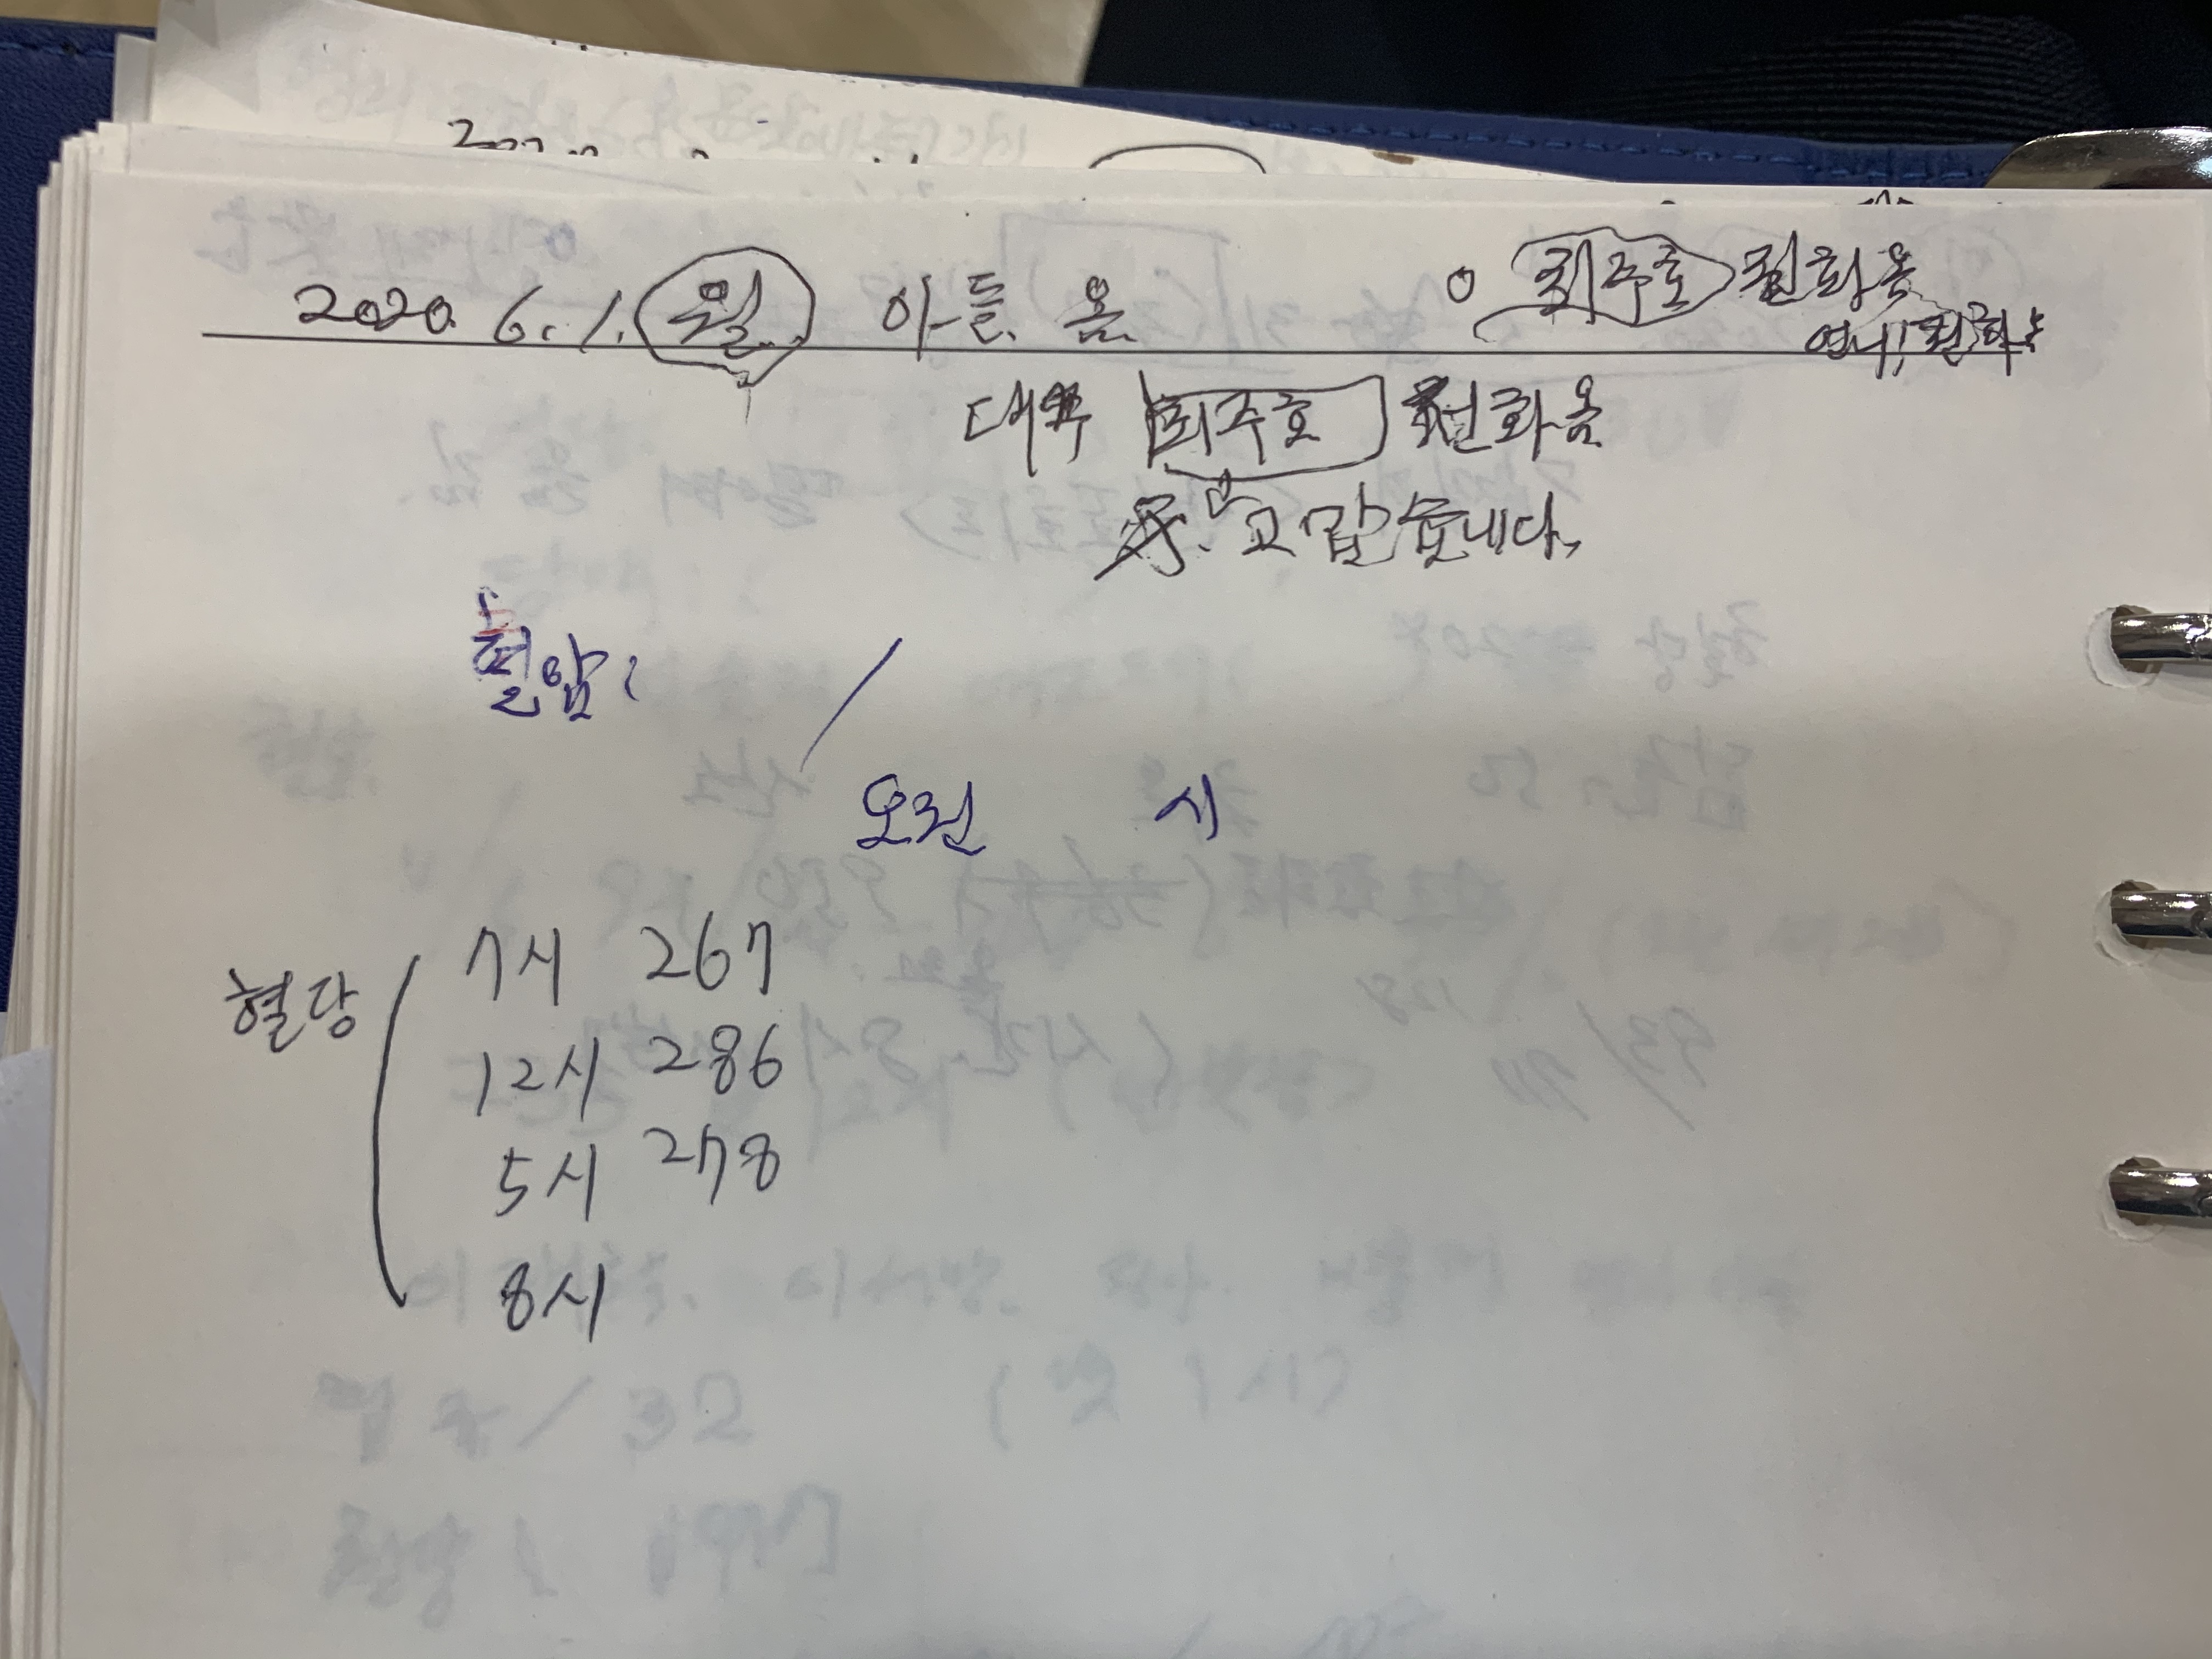 2020. 6. 1. 월 아들 옴.
○ 최주호 전화옴
전화
대부 최주호 전화옴
고맙습니다.
혈압:
/
오전 시
혈당
7시 267
12시 286
5시 278
8시